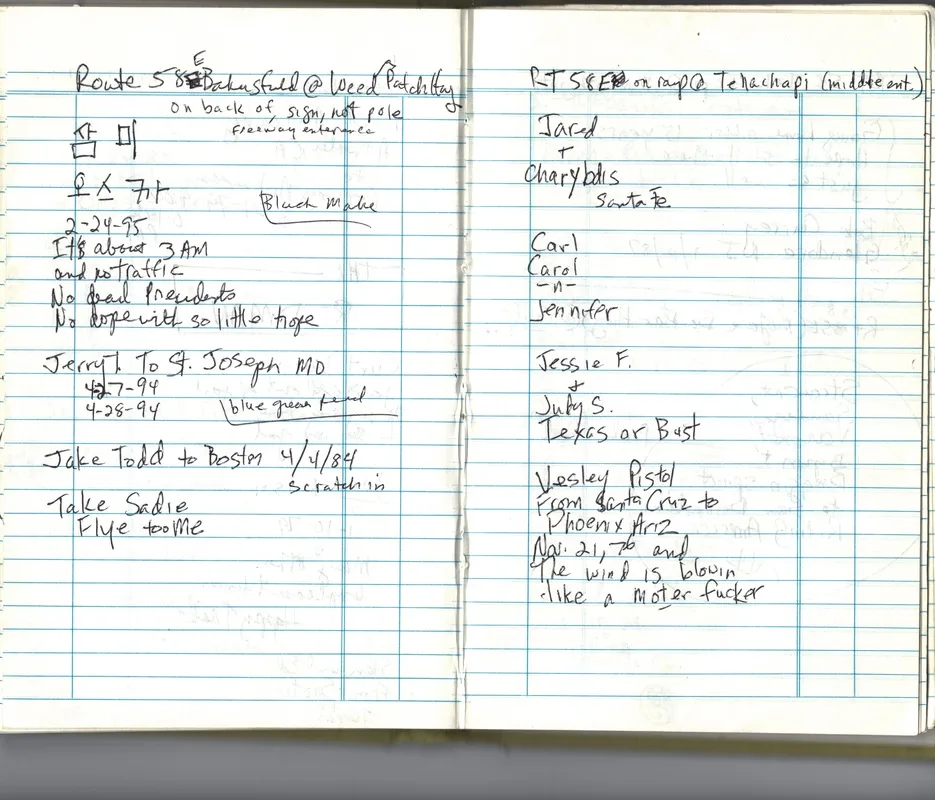 Route 58 E Bakersfield @ Weed Patch Hwy
on back of sign, not pole
freeway enterence
삼 미
오 스 카
Black Make
2-24-95
It's about 3 AM
and no traffic
No dead Presidents
No dope with so little hope
Jerry J. To St. Joseph MO
4-27-94
4-28-94
blue green
Jake Todd to Boston 4/4/84
scratch in
Take Sadie
Flye too Me
RT 58 E on ramp @ Tehachapi (middle ent.)
Jared
+
Charybdis
Santa Fe
Carl
Carol
-n-
Jennifer
Jessie F.
&
Judy S.
Texas or Bust
Wesley Pistol
From Santa Cruz to
Phoenix Ariz
Nov. 21, 76 and
The wind is blowin
like a moter fucker